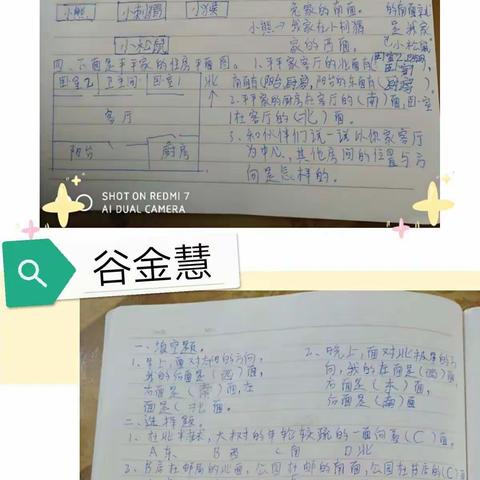 小熊
小刺猬
小猴
小松鼠
兔家的南面。
小熊→我家在小刺猬
家的西面。
的南面就
是我家
小松鼠
四、下面是平平家的住房平面图。
卧室2
卫生间
卧室1
北
客厅
阳台
厨房
1.平平家客厅的北面有
南面有(阳台,厨房),阳台的东面有(厨房)。
2.平平家的厨房在客厅的(南)面,卧室
1在客厅的(北)面。
3.和伙伴们说一说以你家客厅
为中心,其他房间的位置与方
向是怎样的。
SHOT ON REDMI 7
AI DUAL CAMERA
谷金慧
一、填空题。
1.早上,面对太阳的方向,
我的后面是(西)面,
右面是(南)面,左
面是(北)面。
2、晚上,面对北极星的方
向,我的左面是(西)面
右面是(东)面,
后面是(南)面
二、选择题。
1、在北半球,大树的年轮较疏的一面向着(C)面。
A东 B西 C南 D北
2、书店在邮局的北面,公园在邮局的南面,公园在书店的(C)面